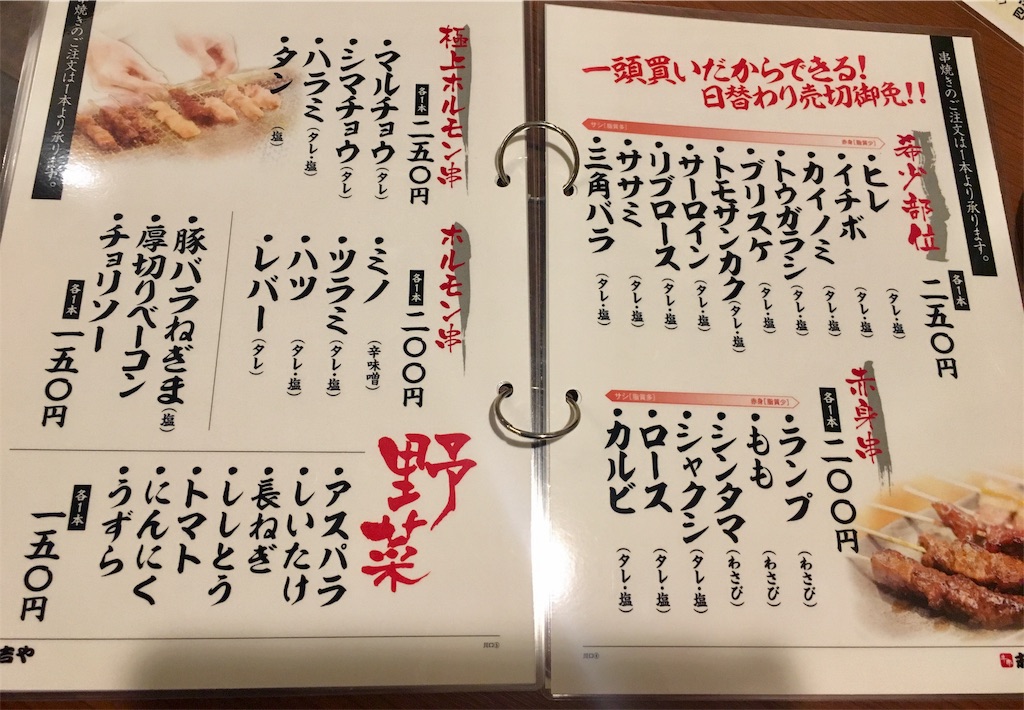 串焼きのご注文は1本より承ります。
一頭買いだからできる!
日替わり売切御免!!
希少部位
各1本
二五〇円
サシ[脂質多]
赤身[脂質少]
・ヒレ(タレ・塩)
・イチボ(タレ・塩)
・カイノミ(タレ・塩)
・トウガラシ(タレ・塩)
・ブリスケ(タレ・塩)
・トモサンカク(タレ・塩)
・サーロイン(タレ・塩)
・リブロース(タレ・塩)
・ササミ(タレ・塩)
・三角バラ(タレ・塩)
赤身串
各1本
二〇〇円
サシ[脂質多]
赤身[脂質少]
・ランプ(わさび)
・もも(わさび)
・シンタマ(わさび)
・シャクシ(タレ・塩)
・ロース(タレ・塩)
・カルビ(タレ・塩)
極上ホルモン串
各1本
二五〇円
・マルチョウ(タレ)
・シマチョウ(タレ)
・ハラミ(タレ・塩)
・タン(塩)
焼きのご注文は1本より承りま
ホルモン串
各1本
二〇〇円
・ミノ(辛味噌)
・ツラミ(タレ・塩)
・ハツ(タレ・塩)
・レバー(タレ)
・豚バラねぎま(塩)
・厚切りベーコン
・チョリソー
各1本
一五〇円
野菜
・アスパラ
・しいたけ
・長ねぎ
・ししとう
・トマト
・にんにく
・うずら
各1本
一五〇円
吉や